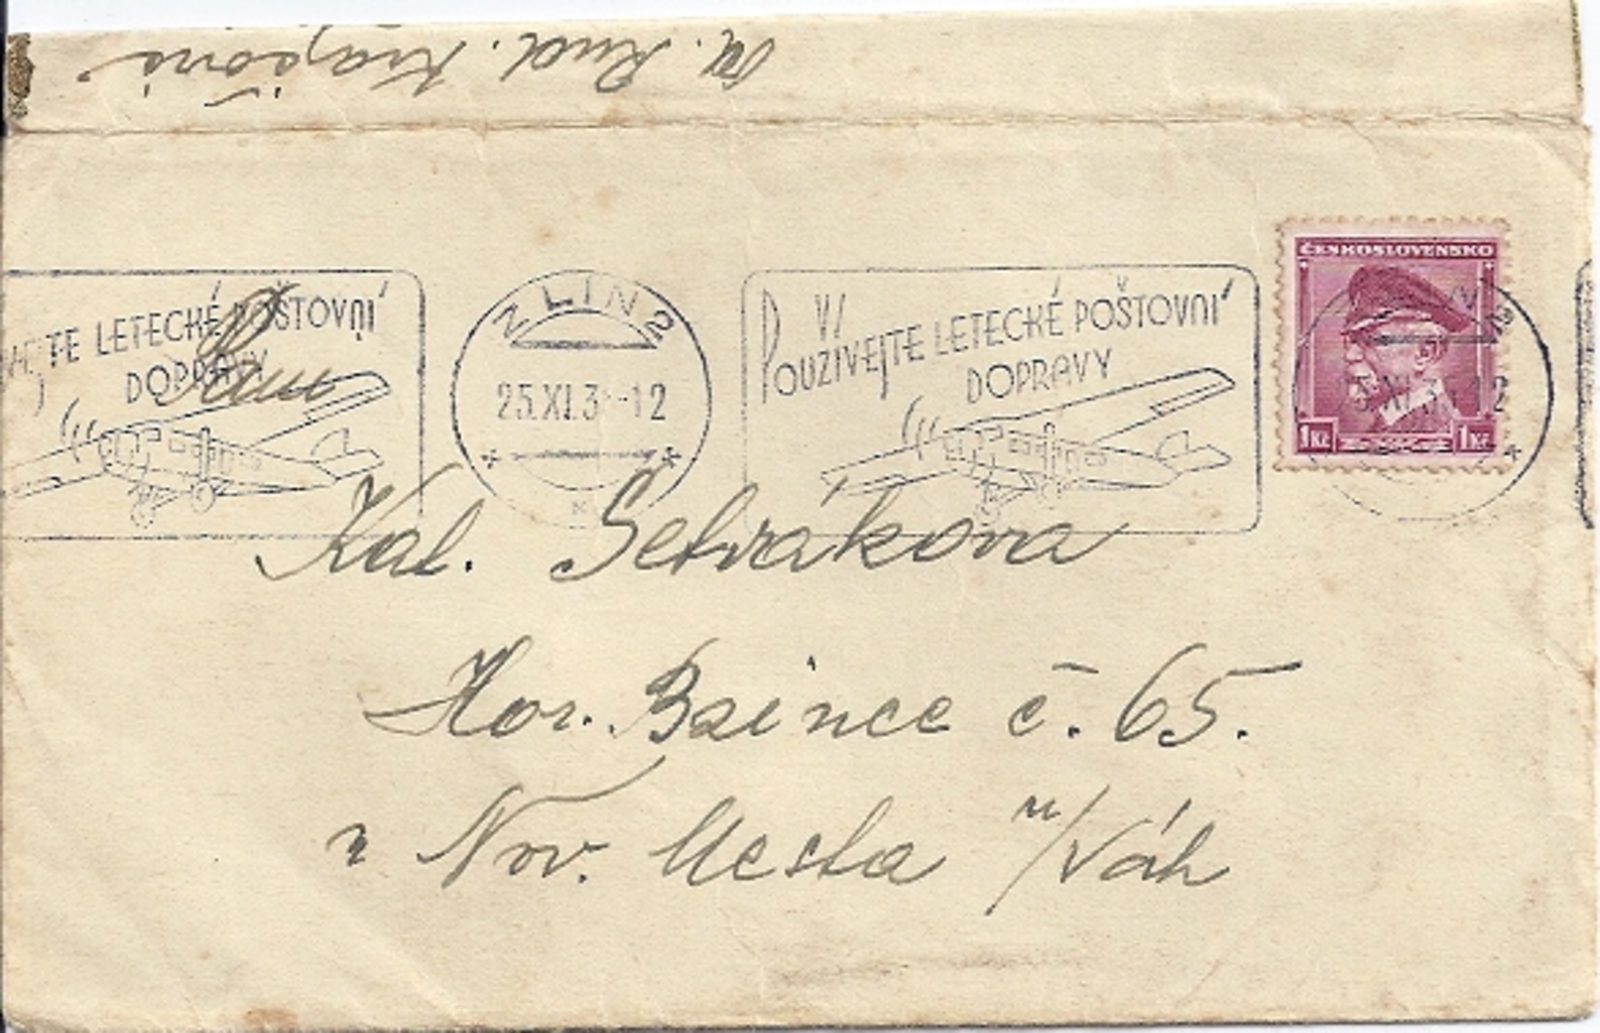 Rud. Krajčovi
VEJTE LETECKÉ POŠTOVNÍ
DOPRAVY
ZLÍN 2
25.XI.3 -12
POUŽÍVEJTE LETECKÉ POŠTOVNÍ
DOPRAVY
ČESKOSLOVENSKO
1Kč 1Kč
Kat. Setvákova
Hor. Bzince č. 65.
u Nov. Mesta n/Váh